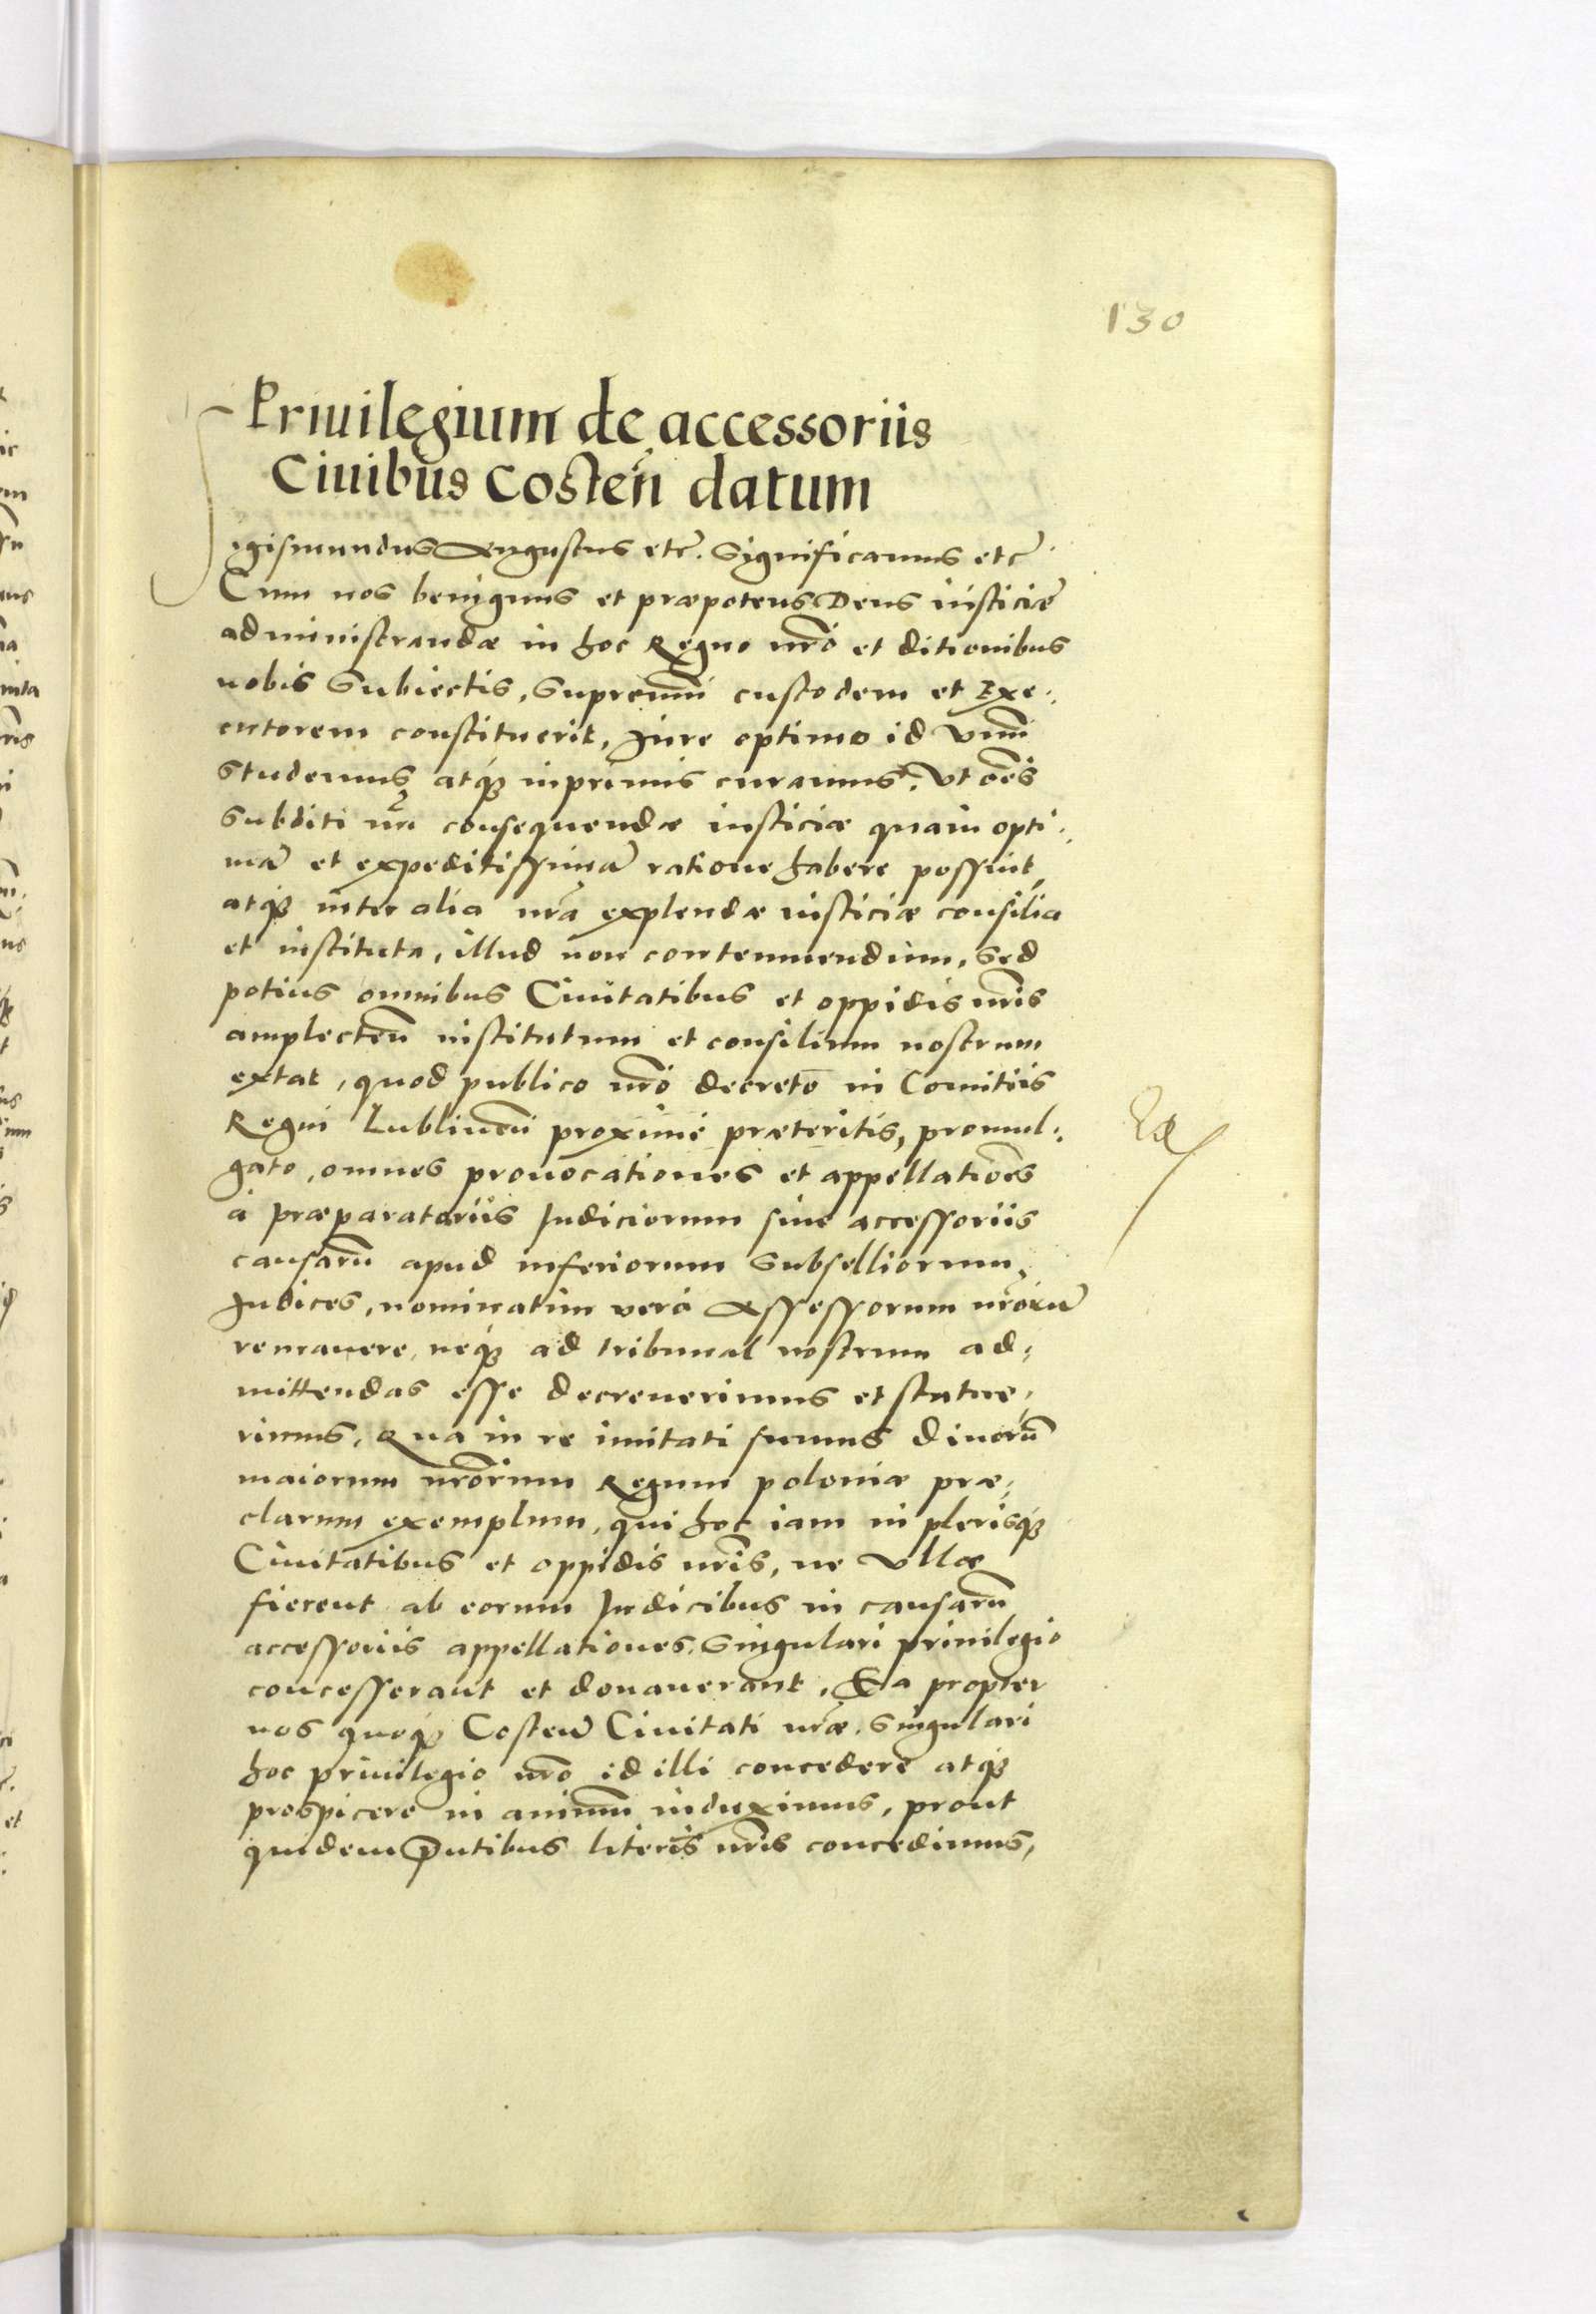 130
Priuilegium de accessoriis
Ciuibus Costeñ datum
Sigismundus Augustus etc̃. Significamus etc̃
Cum nos benignus et præpotens Deus iusticiæ
administrandæ in hoc Regno nr̃o et ditionibus
nobis Subiectis, Supremũ custodem et Exe:
cutorem constituerit, Jure optimo id vnũ
Studemus atq́ꝫ inprimis curamus, Vt oẽs
Subditi nr̃i consequendæ iusticiæ quam opti:
mã et expeditissimã rationẽ habere possint,
atq́ꝫ inter alia nr̃a explendæ iusticiæ consilia
et instituta, illud non contemnendum, Sed
potius omnibus Ciuitatibus et oppidis nr̃is
amplecteñ institutum et consilium nostrum
extat, quod publico nr̃o decreto in Comitiis
Regni Lublineñ proximè præteritis, promul:
gato, omnes prouocationes et appellatiões
à præparatoriis Judiciorum siue accessoriis
causarũ apud inferiorum Subselliorum
Judices, nominatim verò Assessorum nr̃orũ
remanere, neq́ꝫ ad tribunal nostrum ad:
mittendas esse decreuerimus et statue:
rimus, Qua in re imitati sumus Diuorũ
maiorum nr̃orum Regum poloniæ præ:
clarum exemplum, qui hoc iam in plerisq́ꝫ
Ciuitatibus et oppidis nr̃is, ne vllæ
fierent ab eorum Judicibus in causarũ
accessoriis appellationes, Singulari priuilegio
concesserant et donauerant, Ea propter
nos quoq́ꝫ Costeñ Ciuitati nr̃æ, Singulari
hoc priuilegio nr̃o id illi concedere atq́ꝫ
prospicere in animũ induximus, prout
quidem p̃ntibus literis nr̃is concedimus,